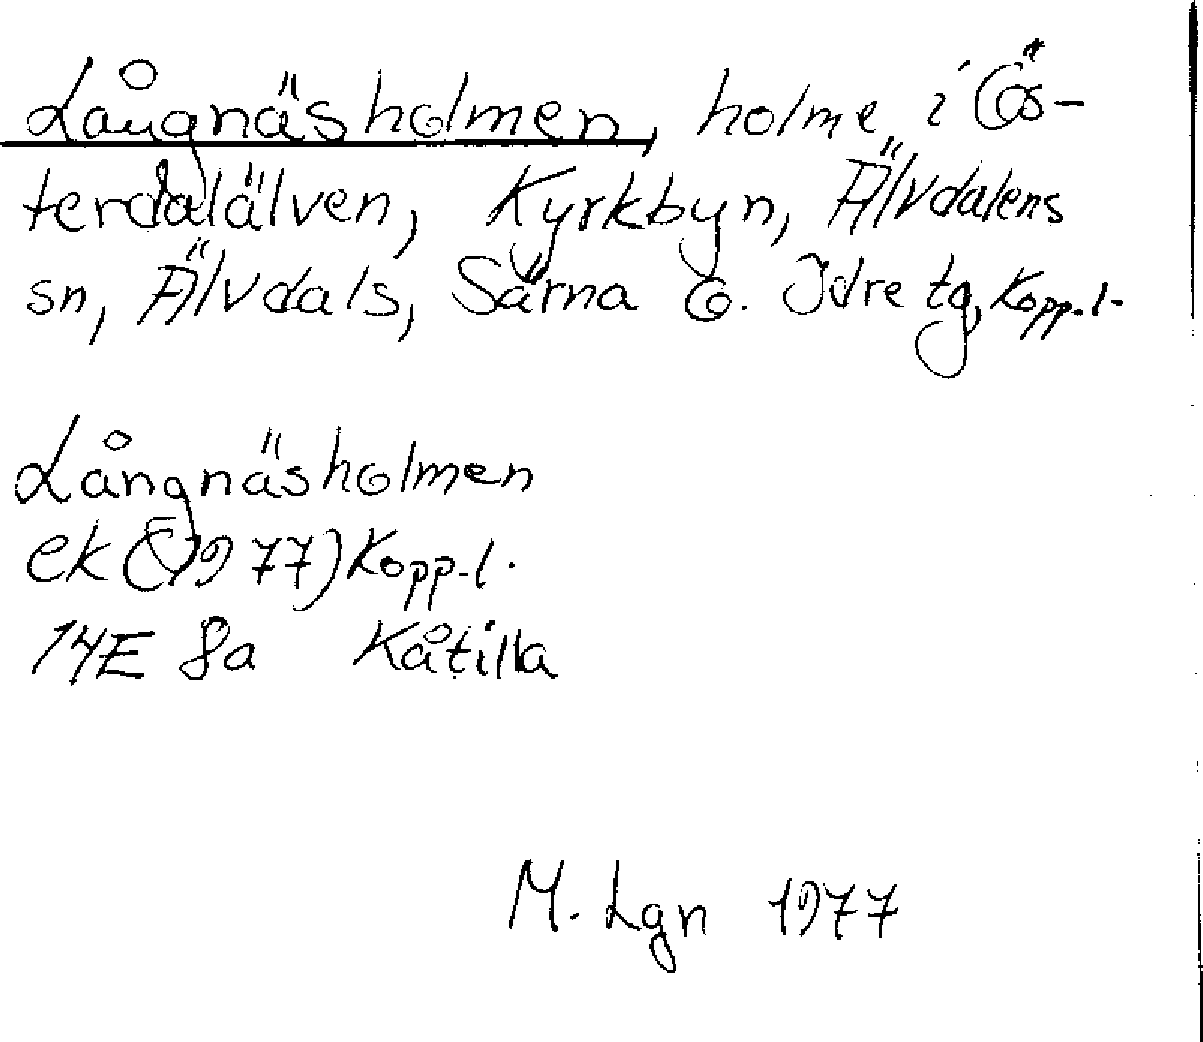 Långnäsholmen, holme i Ös-
terdalälven, Kyrkbyn, Älvdalens
sn, Älvdals, Särna o. Idre tg, Kopp.l.
Långnäsholmen
ek (1977) Kopp.l.
14E 8a Kåtilla
M. Lgn 1977